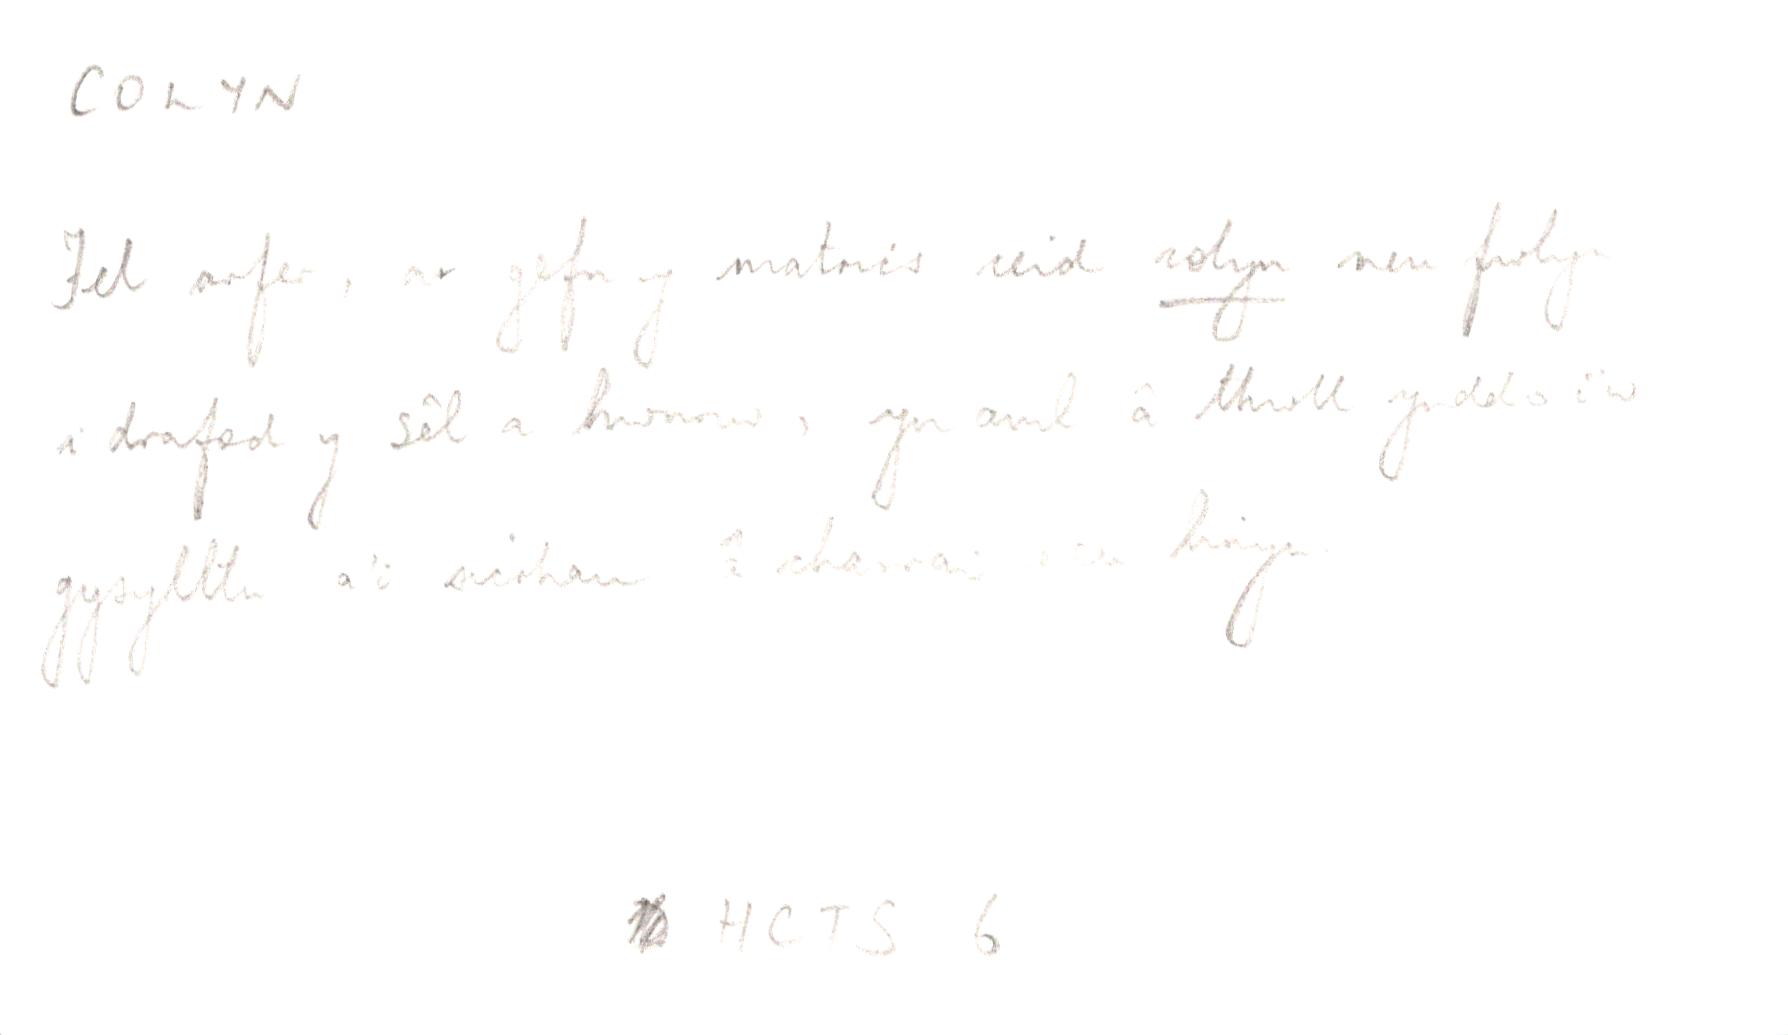 COLYN
Fel arfer, ar gefn y matrics ceid colyn neu fwlyn
i drafod y sêl a hwnnw, yn aml â thwll ynddo i'w
gysylltu a'i sicrhau â charrai neu linyn
HCTS 6